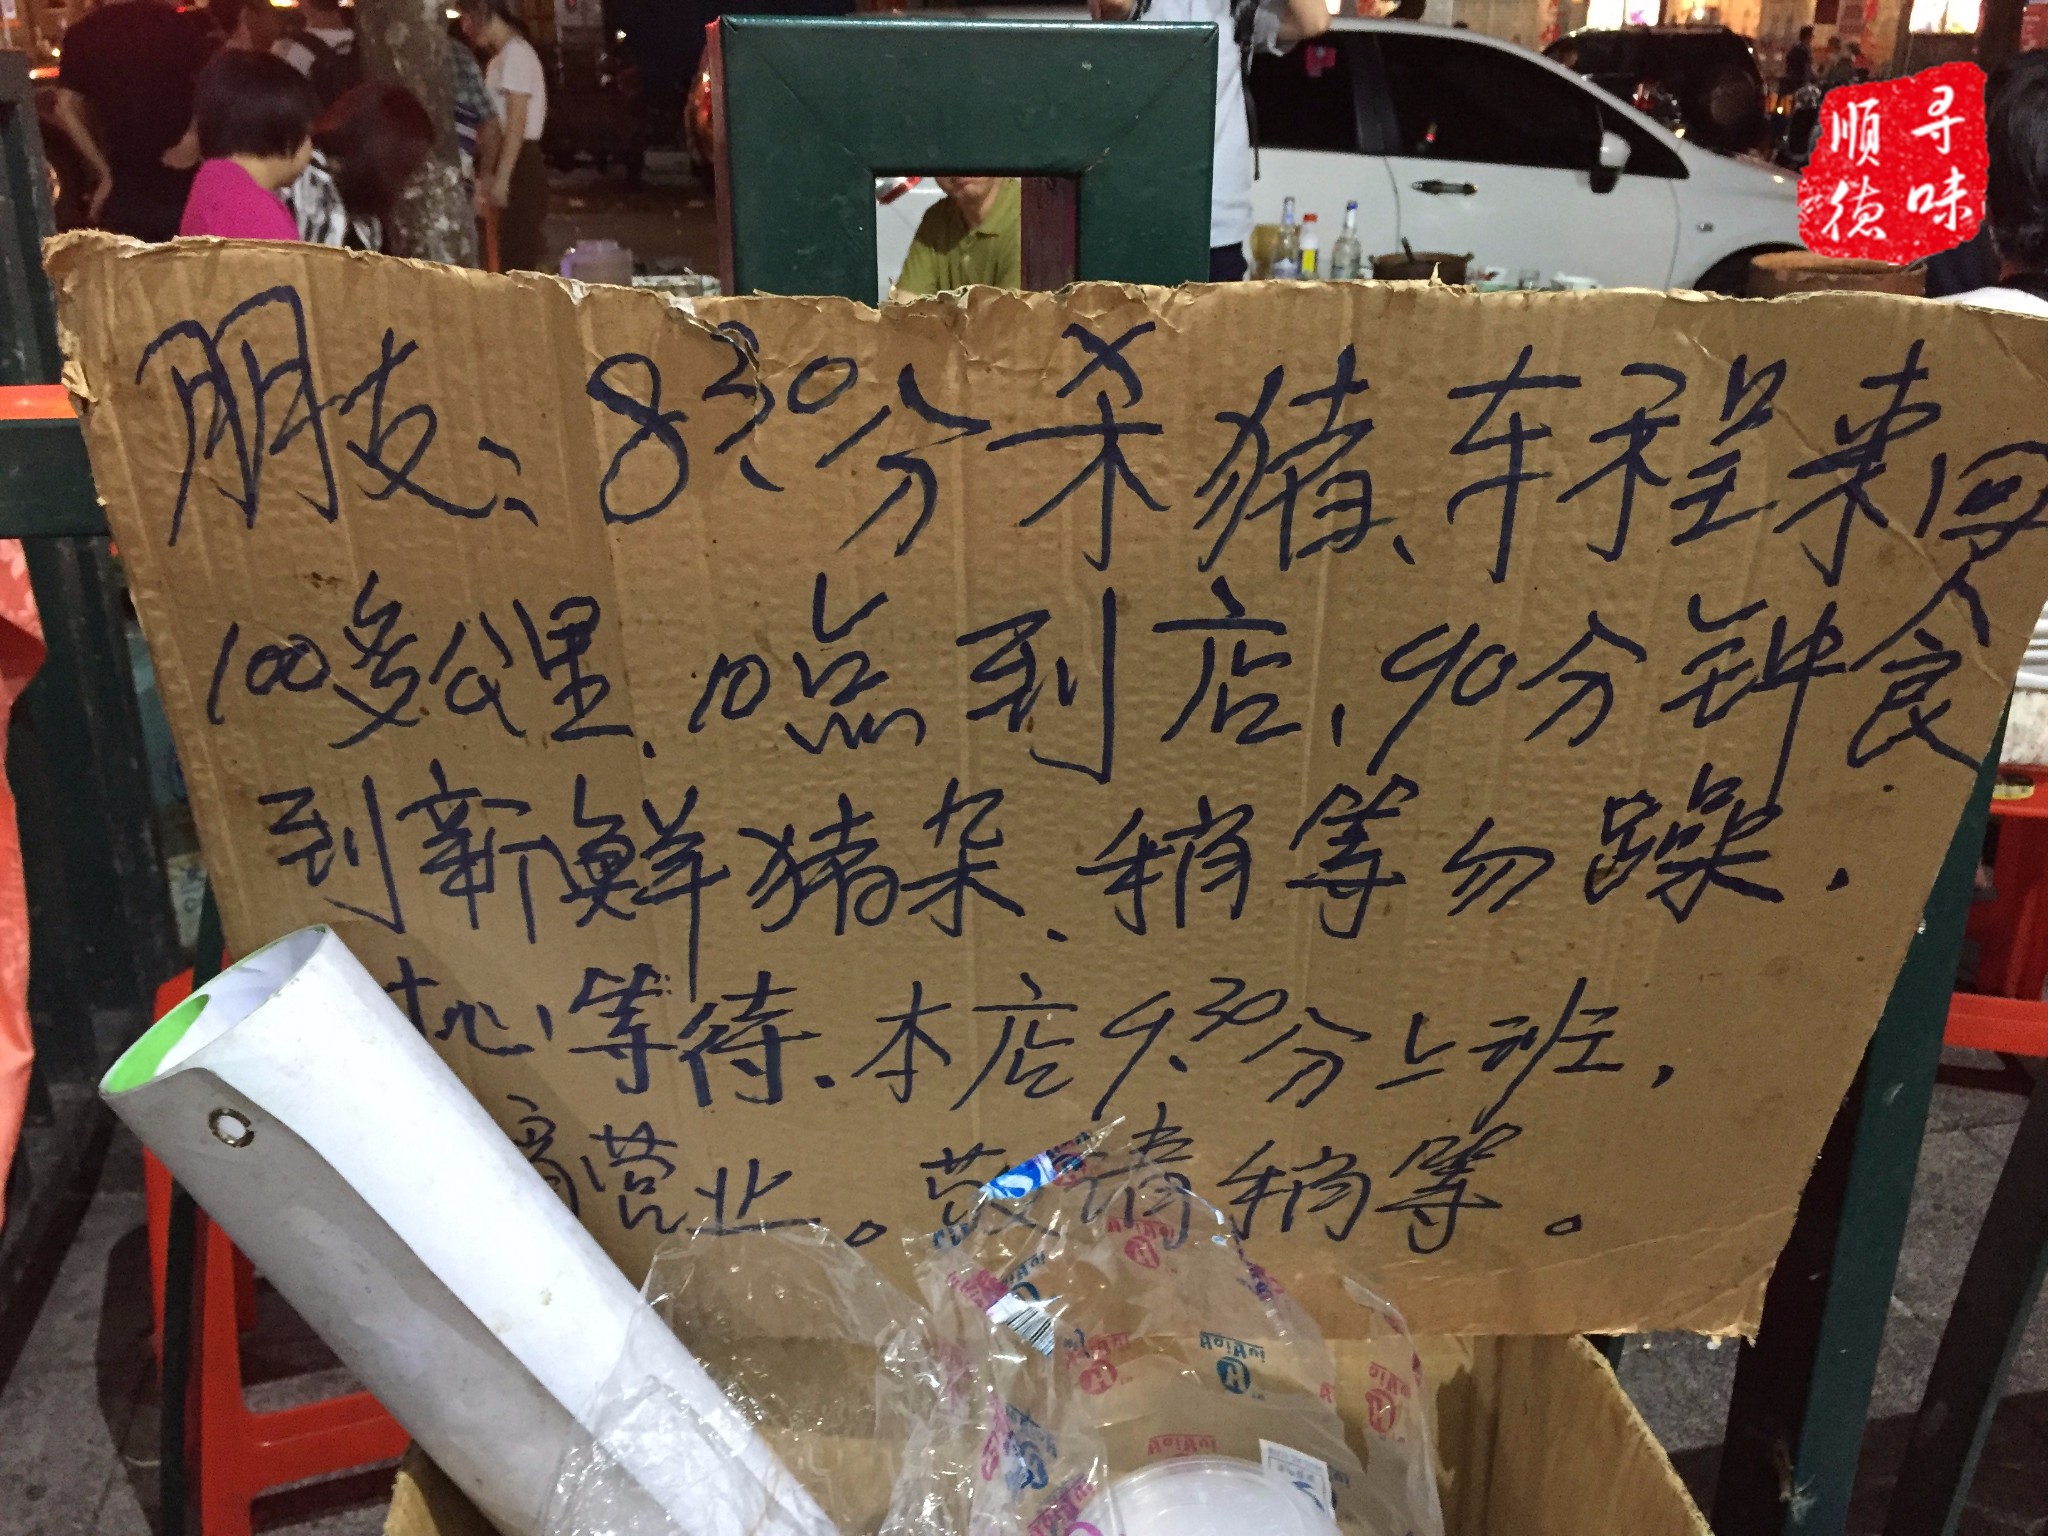 寻味
顺德
朋友:8.30分杀猪、车程来回
100多公里、10点到店、90分钟食
到新鲜猪杂、稍等勿躁.
心等待.本店9.30分上班,
营业。敬请稍等。